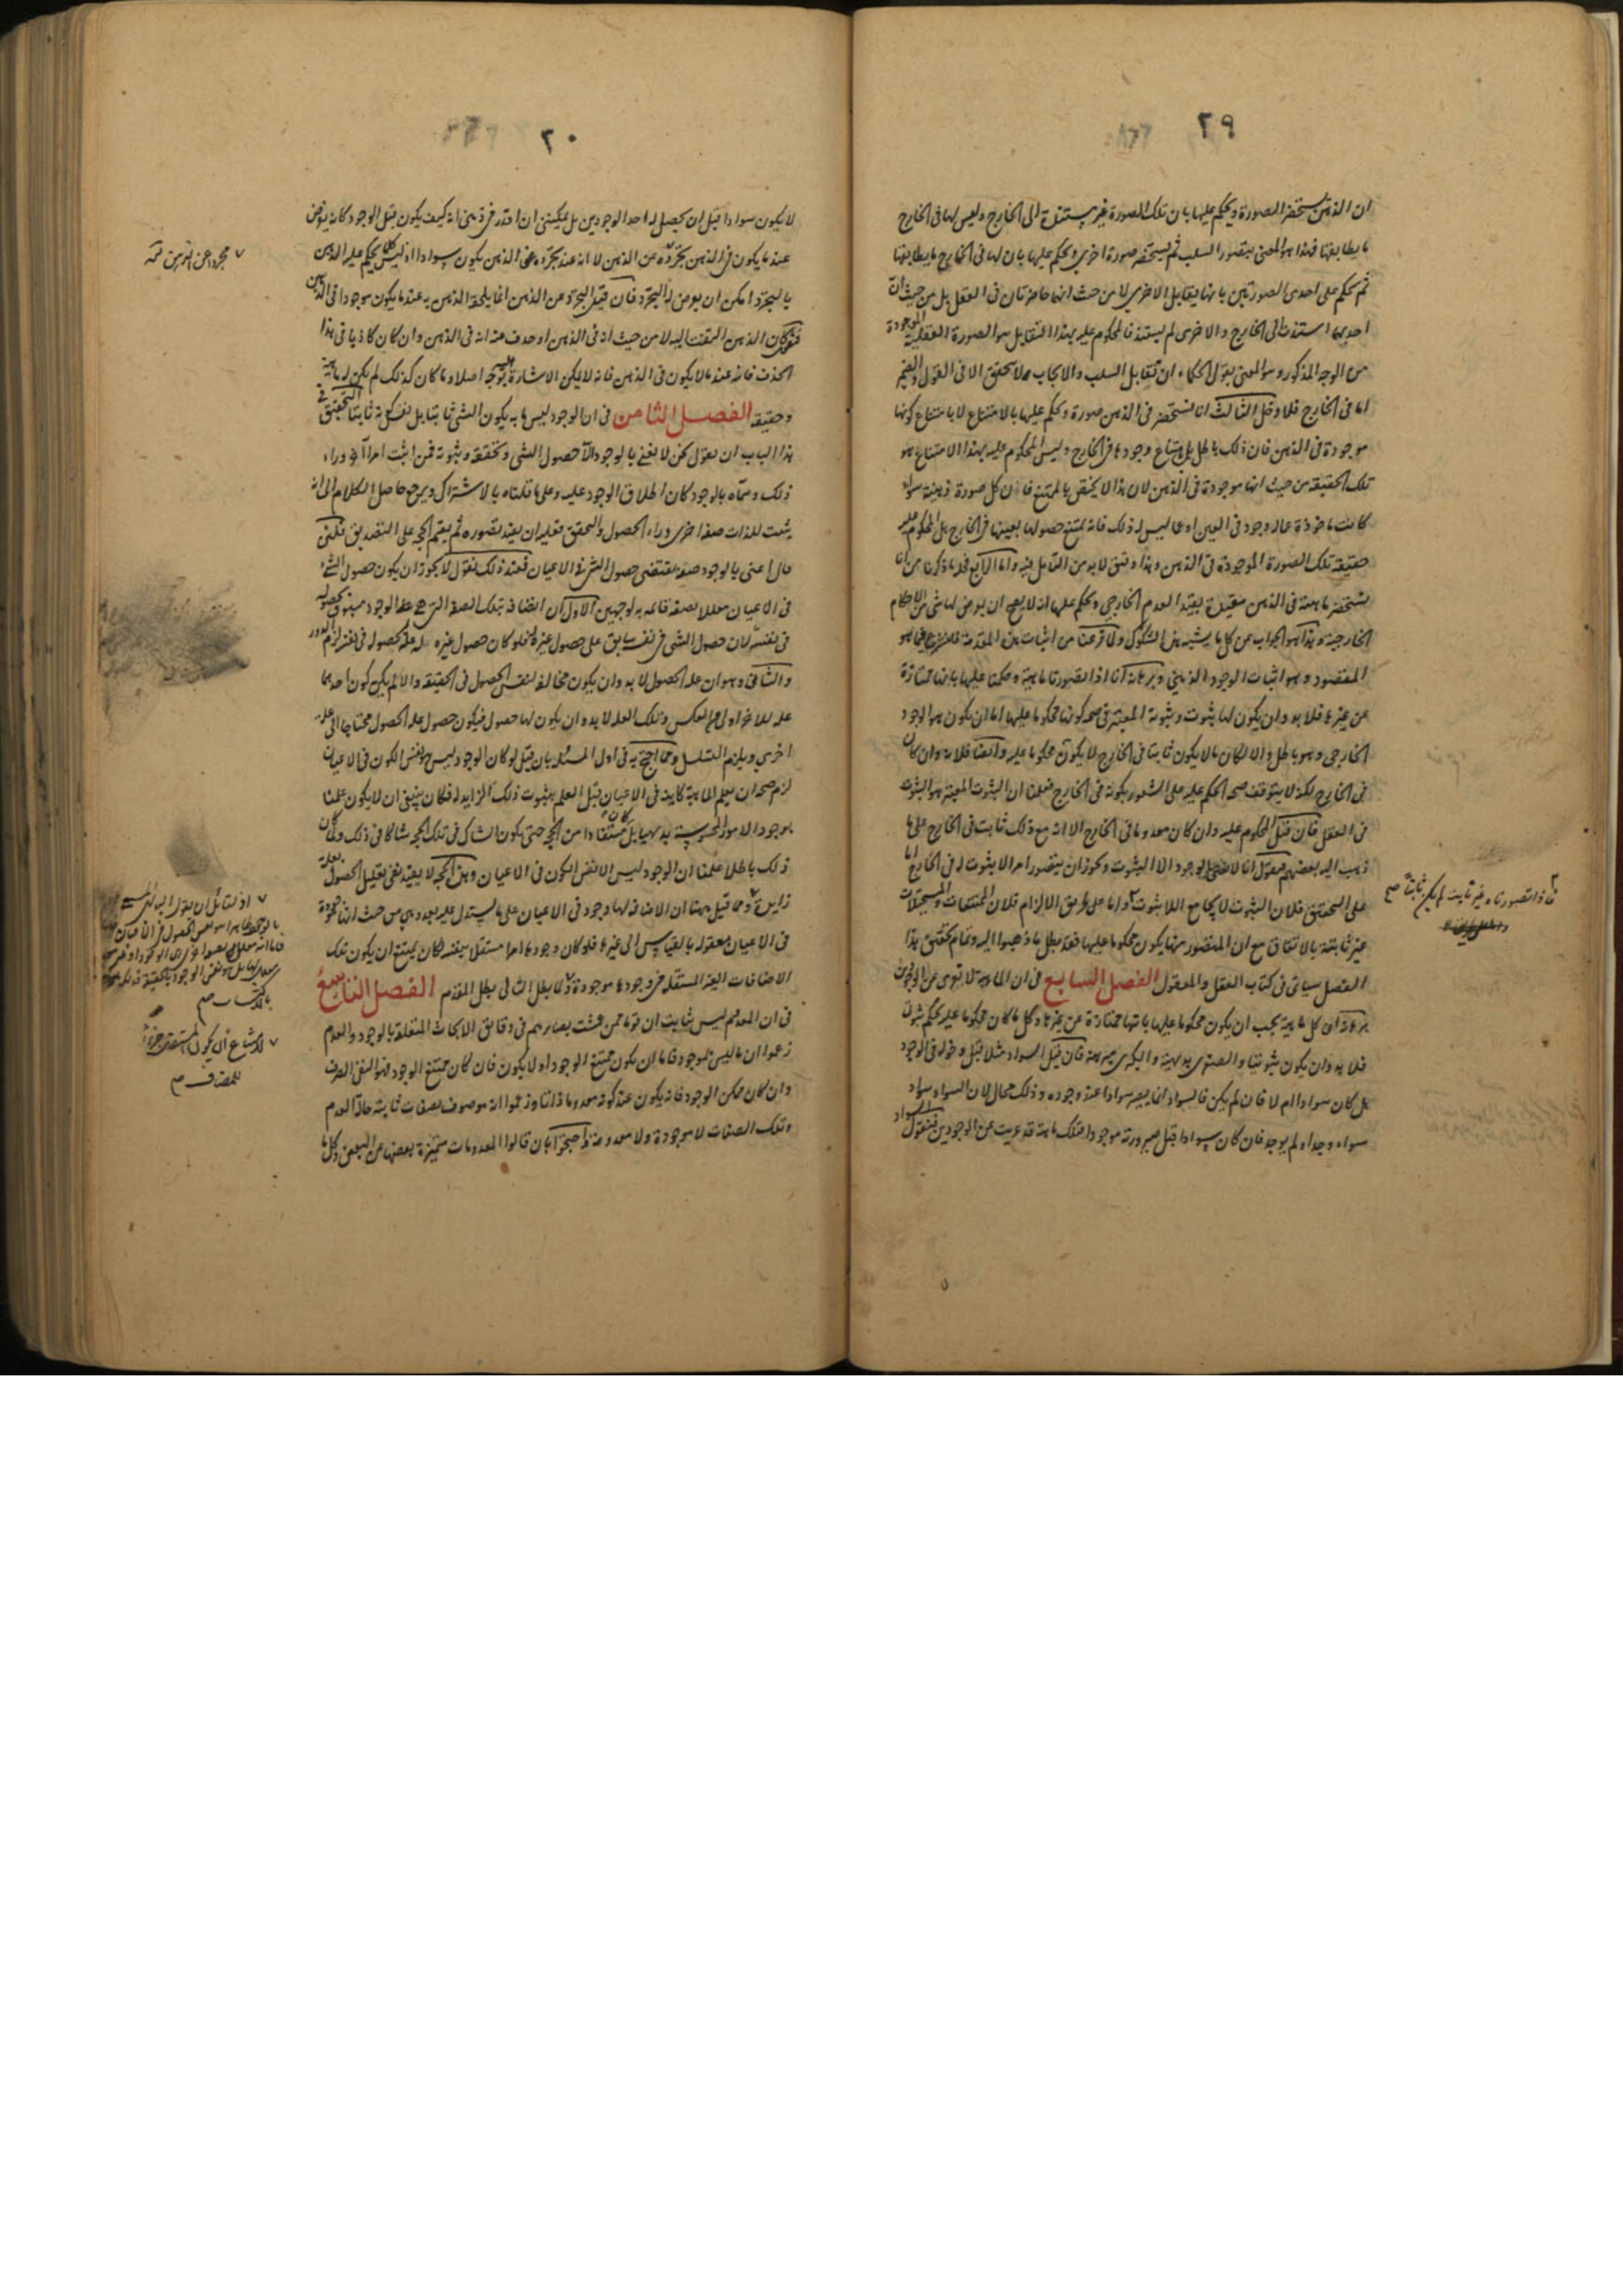 ٢٩
ان الذهن يستحضر الصورة ويحكم عليها بان تلك الصورة غير مستندة الى الخارج وليس لها فى الخارج
ما يطابقها فهذا هو المعنى بتصور السلب ثم يستحضر صورة اخرى ويحكم عليها بان لها فى الخارج ما يطابقها
ثم يحكم على احدى الصورتين بانها يقابل الاخرى لا من حيث انهما حاضرتان فى العقل بل من حيث ان
احديهما استندت الى الخارج والاخرى لم يستند فالمحكوم عليه بهذا التقابل هو الصورة العقلية الموجودة
من الوجه المذكور وهو المعنى بقول الحكماء ان تقابل السلب والايجاب مما لا يتحقق الا فى القول والضمير
اما فى الخارج فلا وحل الثالث انا نستحضر فى الذهن صورة ويحكم عليها بالامتناع لا بامتناع كونها
موجودة فى الذهن فان ذلك باطل بل بامتناع وجودها فى الخارج وليس المحكوم عليه بهذا الامتناع هو
تلك الحقيقة من حيث انها موجودة فى الذهن لان هذا لا يختص بالممتنع فان كل صورة ذهنية سواء
كانت ماخوذة عما له وجود فى العين او عما ليس له ذلك فانه يمتنع حصولها بعينها فى الخارج بل المحكوم عليه
حقيقة تلك الصورة الموجودة فى الذهن وهذا دقيق لا بد من التامل فيه واما الرابع فحله ما ذكرنا من انا
نستحضر ماهية فى الذهن مقيدة بقيد العدم الخارجى ونحكم عليها انه لا يصح ان يعرض لها شئ من الاحكام
الخارجية وهذا هو الجواب عن كل ما يشبه هذه الشكوك ولما فرغنا من اثبات هذه المقدمة فلنشرع فيما هو
المقصود وهو اثبات الوجود الذهنى وبرهانه انا اذا تصورنا ماهية وحكمنا عليها بانها ممتازة
عن غيرها فلا بد وان يكون لها ثبوت وثبوته المعتبر فى صحة كونها محكوما عليها اما ان يكون هو الوجود
الخارجى وهو باطل والا لكان ما لا يكون ثابتا فى الخارج لا يكون محكوما عليه وايضا فلانه وان كان
فى الخارج لكنه لا يتوقف صحة الحكم عليه على الشعور بكونه فى الخارج فعلمنا ان الثبوت المعتبر هو الثبوت
فى العقل فان قيل المحكوم عليه وان كان معدوما فى الخارج الا انه مع ذلك ثابت فى الخارج على ما
ذهب اليه بعضهم فنقول انا لا نعنى بالوجود الا الثبوت ويجوز ان يتصور امر الا يثبوت له فى الخارج اما
على التحقيق فلان الثبوت لا يجامع اللاثبوت واما على طريق الالزام فلان الممتنعات والمستحيلات
غير ثابتة بالاتفاق مع ان المتصور منها يكون محكوما عليها فقد بطل ما ذهبوا اليه وتمام تحقيق هذا
الفصل سياتى فى كتاب العقل والمعقول الفصل السابع فى ان الماهية لا تعرى عن الوجودين
برهانه ان كل ماهية يجب ان يكون محكوما عليها بانها ممتازة عن غيرها وكل ما كان محكوما عليه بحكم ثبوتى
فلا بد وان يكون ثبوتيا والصغرى بديهية والكبرى مبرهنة فان قيل السواد مثلا قبل دخوله فى الوجود
هل كان سوادا ام لا فان لم يكن فالسواد انما يصير سوادا عند وجوده وذلك محال لان السواد سواد
سواء وجد او لم يوجد فان كان سوادا قبل صيرورته موجودا فتلك ماهية قد عريت عن الوجودين فنقول السواد
فاذا تصورناه غير ثابت لم يكن ثابتا صح
٢٠
لا يكون سوادا قبل ان يحصل له احد الوجودين بل يمكننى ان اقدر فى ذهنى انه كيف يكون قبل الوجود كانه يعرض
عند ما يكون فى الذهن تجرده عن الذهن لا انه عند تجرده عن الذهن يكون سوادا اذ ليس كلما يحكم عليه الذهن
بالتجرد امكن ان يعرض له التجرد فان قيل التجرد عن الذهن انما يلحقه الذهن به عند ما يكون موجودا فى الذهن
فنقول كان الذهن التفت اليه لا من حيث انه فى الذهن او حذف عنه انه فى الذهن وان كان كاذبا فى هذا
الحذف فانه عند ما لا يكون فى الذهن فانه لا يمكن الاشارة اليه بوجه اصلا وما كان كذلك لم يكن له ماهية
وحقيقة الفصل الثامن فى ان الوجود ليس ما به يكون الشئ ثابتا بل نفس كونه ثابتا التحقيق فى
هذا الباب ان نقول نحن لا نعنى بالوجود الا حصول الشئ وتحققه وثبوته فمن اثبت امرا اخر وراء
ذلك وسماه بالوجود كان اطلاق الوجود عليه وعلى ما قلناه بالاشتراك ويرجع حاصل الكلام الى انه
يثبت للذات صفة اخرى وراء الحصول والتحقق فعليه ان يفيد تصوره ثم يقيم الحجة على التصديق فلئن
قال اعنى بالوجود صفة تقتضى حصول الشئ فى الاعيان فعند ذلك نقول لا يجوز ان يكون حصول الشئ
فى الاعيان معللا بصفة قائمة به لوجهين الاول ان اتصافه بتلك الصفة التى هى علة الوجود مسبوق بحصوله
فى نفسه لان حصول الشئ فى نفسه سابق على حصول غيره له فلو كان حصول غيره له علة لحصوله فى نفسه لزم الدور
والثانى وهو ان علة الحصول لا بد وان يكون مخالفا لنفس الحصول فى الحقيقة والا لم يكن كون احدهما
علة للاخر اولى من العكس وتلك العلة لا بد وان يكون لها حصول فيكون حصول علة الحصول محتاجا الى علة
اخرى ويلزم التسلسل ومما احتج به فى اول المسئلة بان قيل لو كان الوجود ليس هو نفس الكون فى الاعيان
لزم صحة ان يعلم الماهية كاينة فى الاعيان قبل العلم بثبوت ذلك الزايد له فكان ينبغى ان لا يكون علمنا
بوجود الامور المحسوسة بديهيا بل كان مستفادا من الحجة حتى يكون الشاك فى تلك الحجة شاكا فى ذلك ولما كان
ذلك باطلا علمنا ان الوجود ليس الا نفس الكون فى الاعيان وهذه الحجة لا يفيد نفى تعليل الحصول بعلة
زايدة ومما قيل ههنا ان الاضافة لها وجود فى الاعيان على ما يستدل عليه بعد وهى من حيث انها موجودة
فى الاعيان معقولة بالقياس الى غيرها فلو كان وجودها امرا مستقلا بنفسه لكان يمتنع ان يكون تلك
الاضافات الغير المستقلة فى وجودها موجودة ولما بطل التالى بطل المقدم الفصل التاسع
فى ان المعدوم ليس بثابت ان قوما ممن عشت بصايرهم فى دقايق الابحاث المتعلقة بالوجود والعدم
زعموا ان ما ليس بموجود فاما ان يكون ممتنع الوجود او لا يكون فان كان ممتنع الوجود فهو النفى الصرف
وان كان ممكن الوجود فانه يكون عند كونه معدوما ذاتا وزعموا انه موصوف بصفات ثابتة حالة العدم
وتلك الصفات لا موجودة ولا معدومة واحتجوا بان قالوا المعدومات متميزة بعضها عن البعض وكل ما
مجرد عن الذهن
اذ لقائل ان يقول
بالاكتساب صح
لامتناع ان يكون المستقل جزءا
للمضاف صح